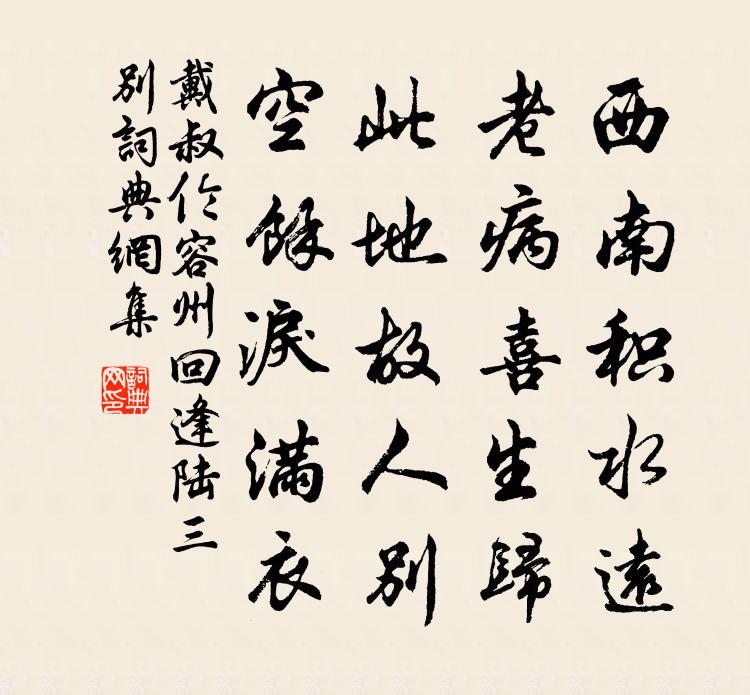 西南积水遠
老病喜生歸
此地故人別
空餘淚满衣
戴叔伦容州回逢陆三
別詞典網集
詞典网印